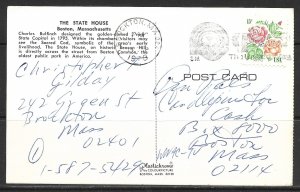 THE STATE HOUSE
Boston, Massachusetts
Charles Bulfinch designed the golden-domed
State Capitol in 1795. Within its chambers visitors may
see the Sacred Cod, symbolic of the area's early
livelihood. The State House, on historic Beacon Hill,
is directly across the street from Boston Common, the
oldest public park in America.
USA 18c
POST CARD
Christopher
242 Green St
Brockton
Mass
02401
1-587-5429
Cash
Box 8000
Boston
Mass
02114
Plastichrome
BY COLOURPICTURE
BOSTON, MASS. 02130